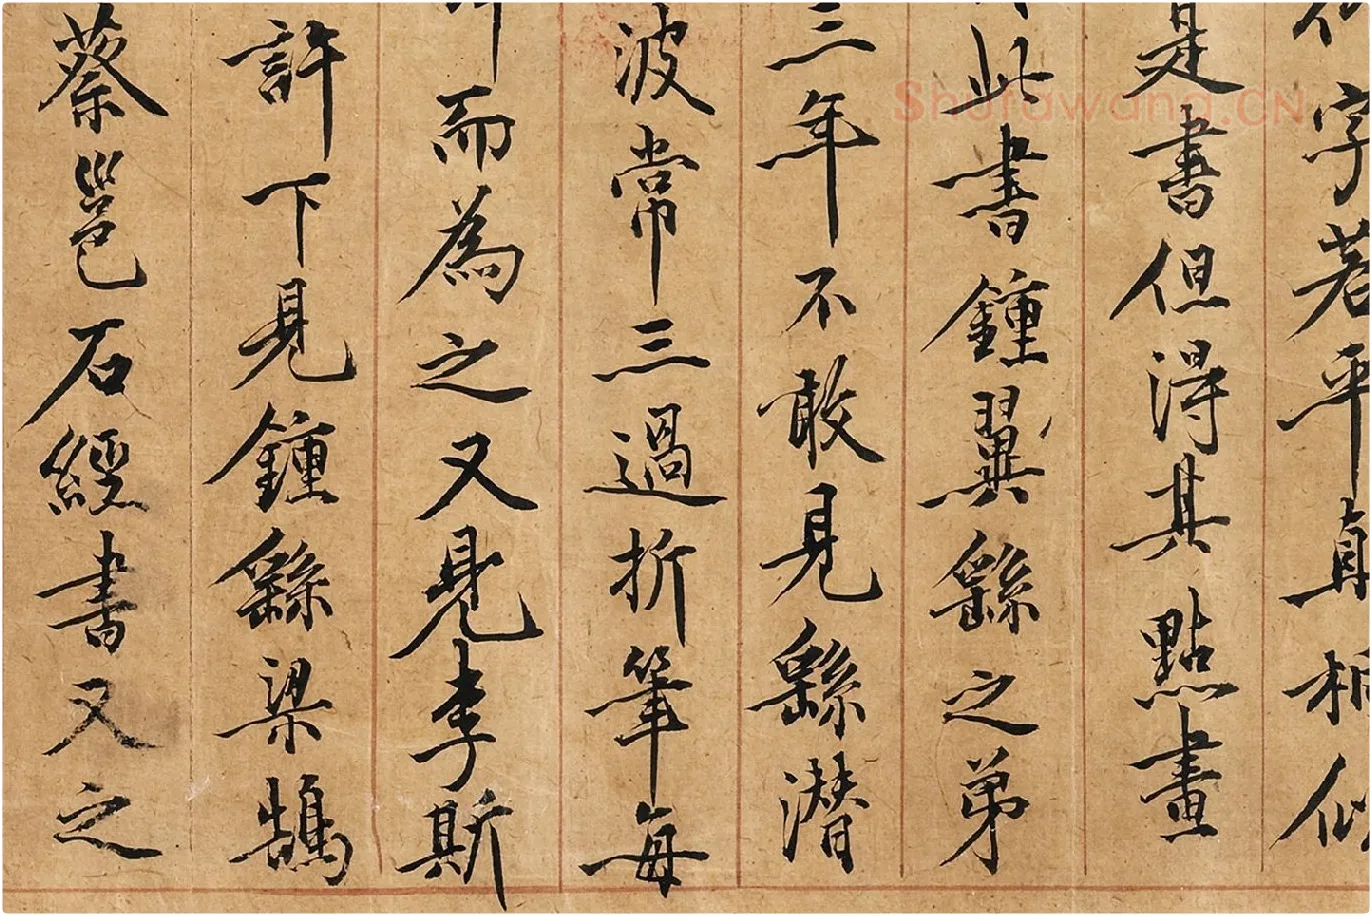 字若平直相似
是書但得其點畫
此書鍾翼繇之弟
三年不敢見繇潜
波常三過折筆每
而為之又見李斯
許下見鍾繇梁鵠
蔡邕石經書又之
Shufawang.CN